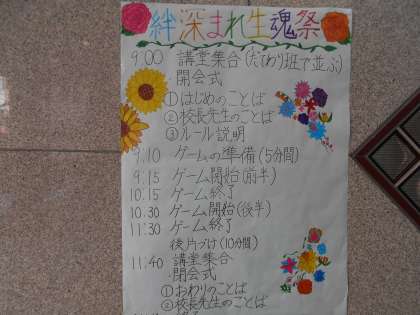 絆深まれ生魂祭
9:00 講堂集合(たてわり班で並ぶ)
・開会式
①はじめのことば
②校長先生のことば
③ルール説明
9.10 ゲームの準備(5分間)
9.15 ゲーム開始(前半)
10.15 ゲーム終了
10.30 ゲーム開始(後半)
11.30 ゲーム終了
後片づけ(10分間)
11.40 講堂集合
・閉会式
①おわりのことば
②校長先生のことば